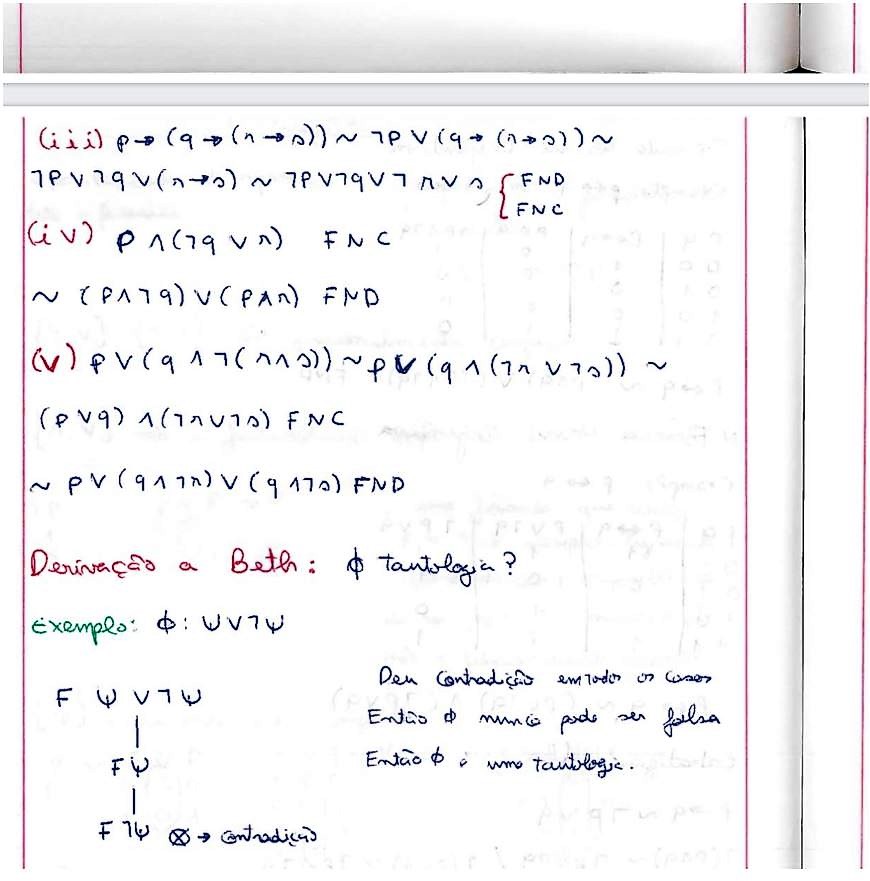 (iii) p → (q → (r → s)) ~ ¬P ∨ (q → (r → s)) ~
¬P ∨ ¬q ∨ (r → s) ~ ¬P ∨ ¬q ∨ ¬r ∨ s { FND
FNC
(iv) P ∧ (¬q ∨ r) FNC
~ (P ∧ ¬q) ∨ (P ∧ r) FND
(v) p ∨ (q ∧ ¬(r ∧ s)) ~ p ∨ (q ∧ (¬r ∨ ¬s)) ~
(P ∨ q) ∧ (¬r ∨ ¬s) FNC
~ P ∨ (q ∧ ¬r) ∨ (q ∧ ¬s) FND
Derivação a Beth: ϕ tautologia?
Exemplo: ϕ: ψ ∨ ¬ψ
F ψ ∨ ¬ψ
Fψ
F ¬ψ ⊗ → contradição
Deu contradição em todos os casos
Então ϕ nunca pode ser falsa
Então ϕ é uma tautologia.